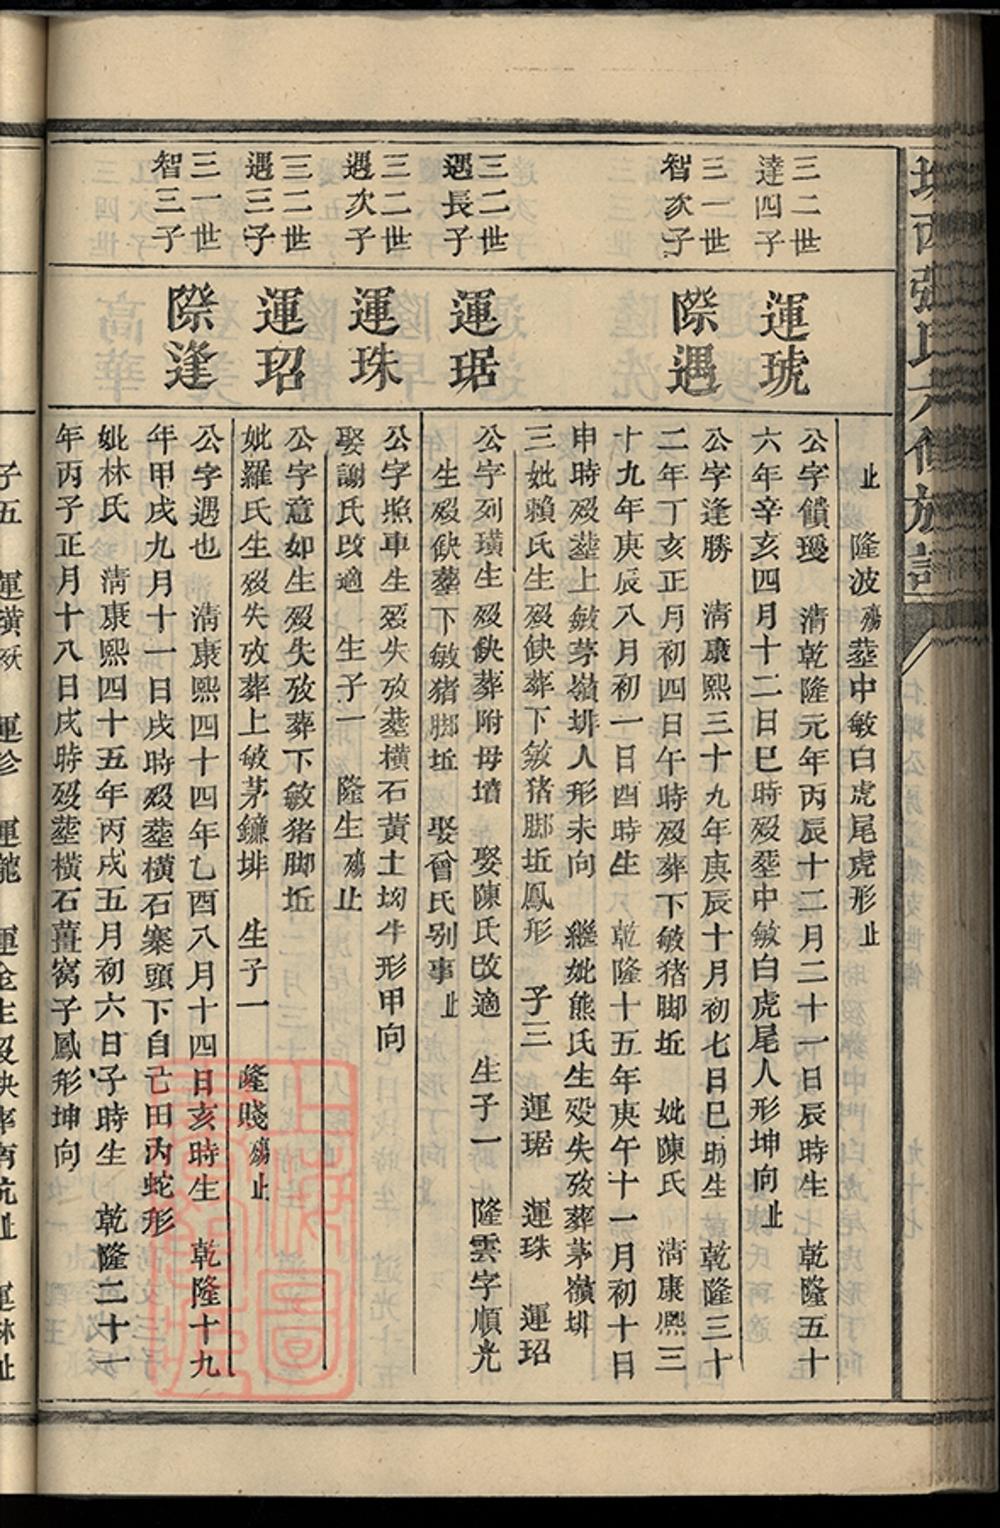 三二世
達四子
運琥
三一世
智次子
際遇
三二世
遇長子
運琚
三二世
遇次子
運珠
三二世
遇三子
運玿
三一世
智三子
際逢
止 隆波殤 塟中敏白虎尾虎形止
公字饋璦 清乾隆元年丙辰十二月二十一日辰時生 乾隆五十
六年辛亥四月十二日巳時歿塟中敏白虎尾人形坤向止
公字逢勝 清康熙三十九年庚辰十月初七日巳時生 乾隆三十
二年丁亥正月初四日午時歿葬下敏猪脚坵 妣陳氏 清康熙三
十九年庚辰八月初一日酉時生 乾隆十五年庚午十一月初十日
申時歿塟上敏茅嶺排人形未向 繼妣熊氏生歿失攷葬茅嶺排
三妣賴氏生歿缺葬下敏猪脚坵鳳形 子三 運琚 運珠 運玿
公字列璜生歿缺葬附母墳 娶陳氏改適 生子一 隆雲字順光
生歿缺葬下敏猪脚坵 娶曾氏别事止
公字照車生歿失攷塟橫石黃土坳牛形甲向
娶謝氏改適 生子一 隆生殤止
公字意如生歿失攷葬下敏猪脚坵
妣羅氏生歿失攷葬上敏茅鐮排 生子一 隆賤殤止
公字遇也 清康熙四十四年乙酉八月十四日亥時生 乾隆十九
年甲戌九月十一日戌時歿塟橫石寨頭下自己田內蛇形
妣林氏 清康熙四十五年丙戌五月初六日子時生 乾隆二十一
年丙子正月十八日戌時歿塟橫石薑窩子鳳形坤向